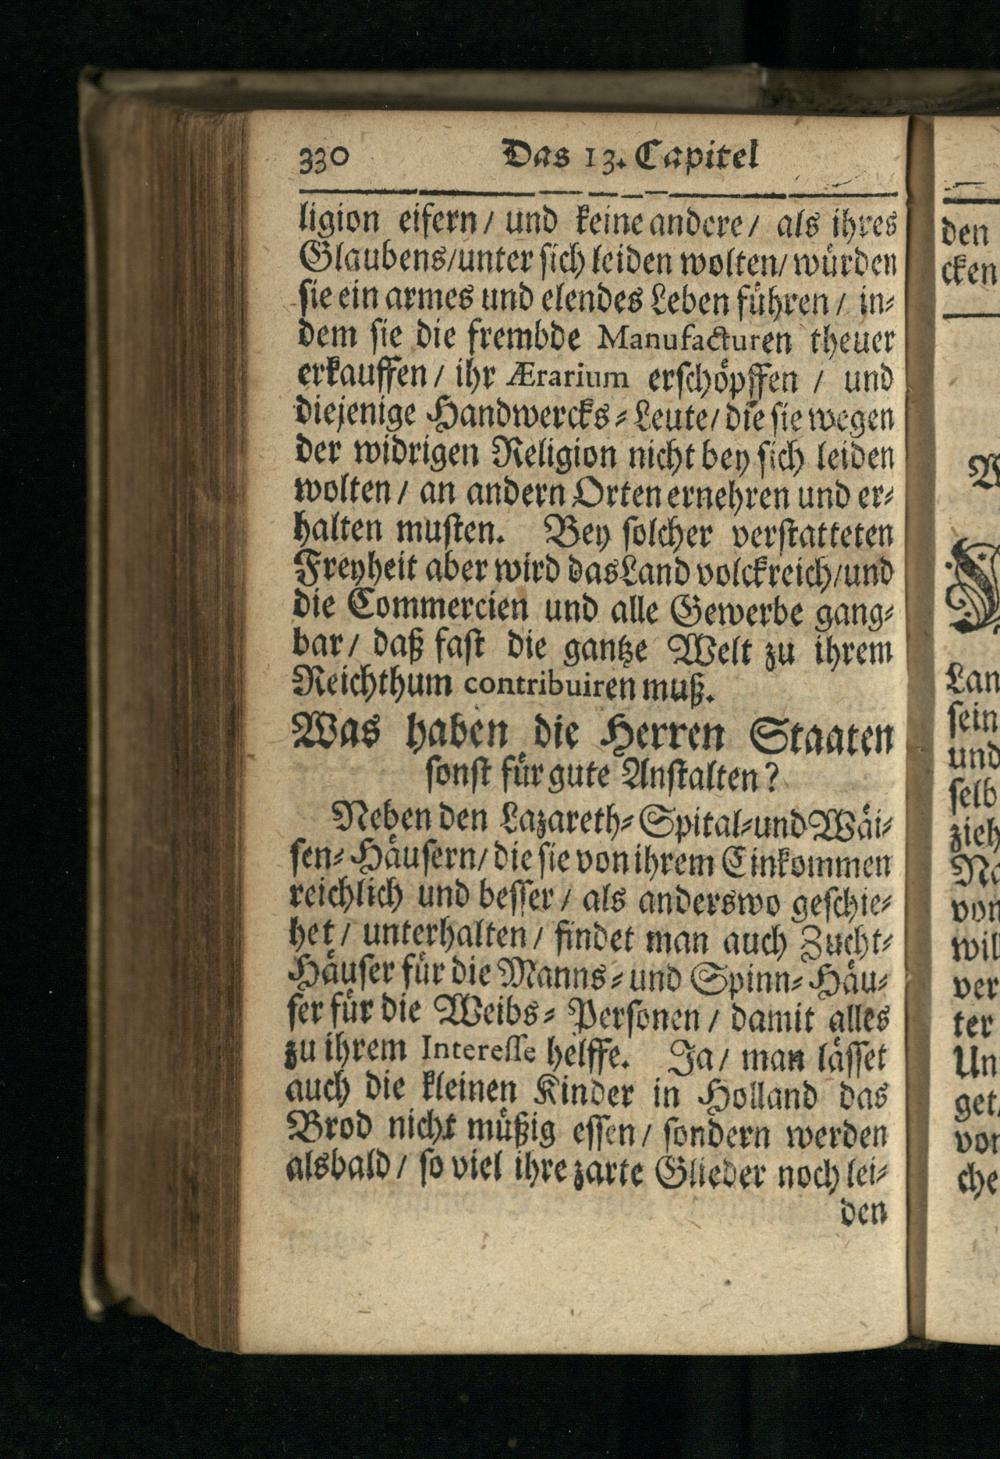 330 Das 13. Capitel
ligion eifern / und keine andere / als ihres
Glaubens / unter sich leiden wolten / würden
sie ein armes und elendes Leben führen / in-
dem sie die frembde Manufacturen theuer
erkauffen / ihr Ærarium erschöpffen / und
diejenige Handwercks-Leute / die sie wegen
der widrigen Religion nicht bey sich leiden
wolten / an andern Orten ernehren und er-
halten musten. Bey solcher verstatteten
Freyheit aber wird das Land volckreich / und
die Commercien und alle Gewerbe gang-
bar / daß fast die gantze Welt zu ihrem
Reichthum contribuiren muß.
Was haben die Herren Staaten
sonst für gute Anstalten?
Neben den Lazareth-Spital-und Wäi-
sen-Häusern / die sie von ihrem Einkommen
reichlich und besser / als anderswo geschie-
het / unterhalten / findet man auch Zucht-
Häuser für die Manns-und Spinn-Häu-
ser für die Weibs-Personen / damit alles
zu ihrem Interesse helffe. Ja / man lässet
auch die kleinen Kinder in Holland das
Brod nicht müßig essen / sondern werden
alsbald / so viel ihre zarte Glieder noch lei-
den
den
cken
Lan
sein
und
selb
zieh
von
wil
ver
ter
Un
get.
von
che